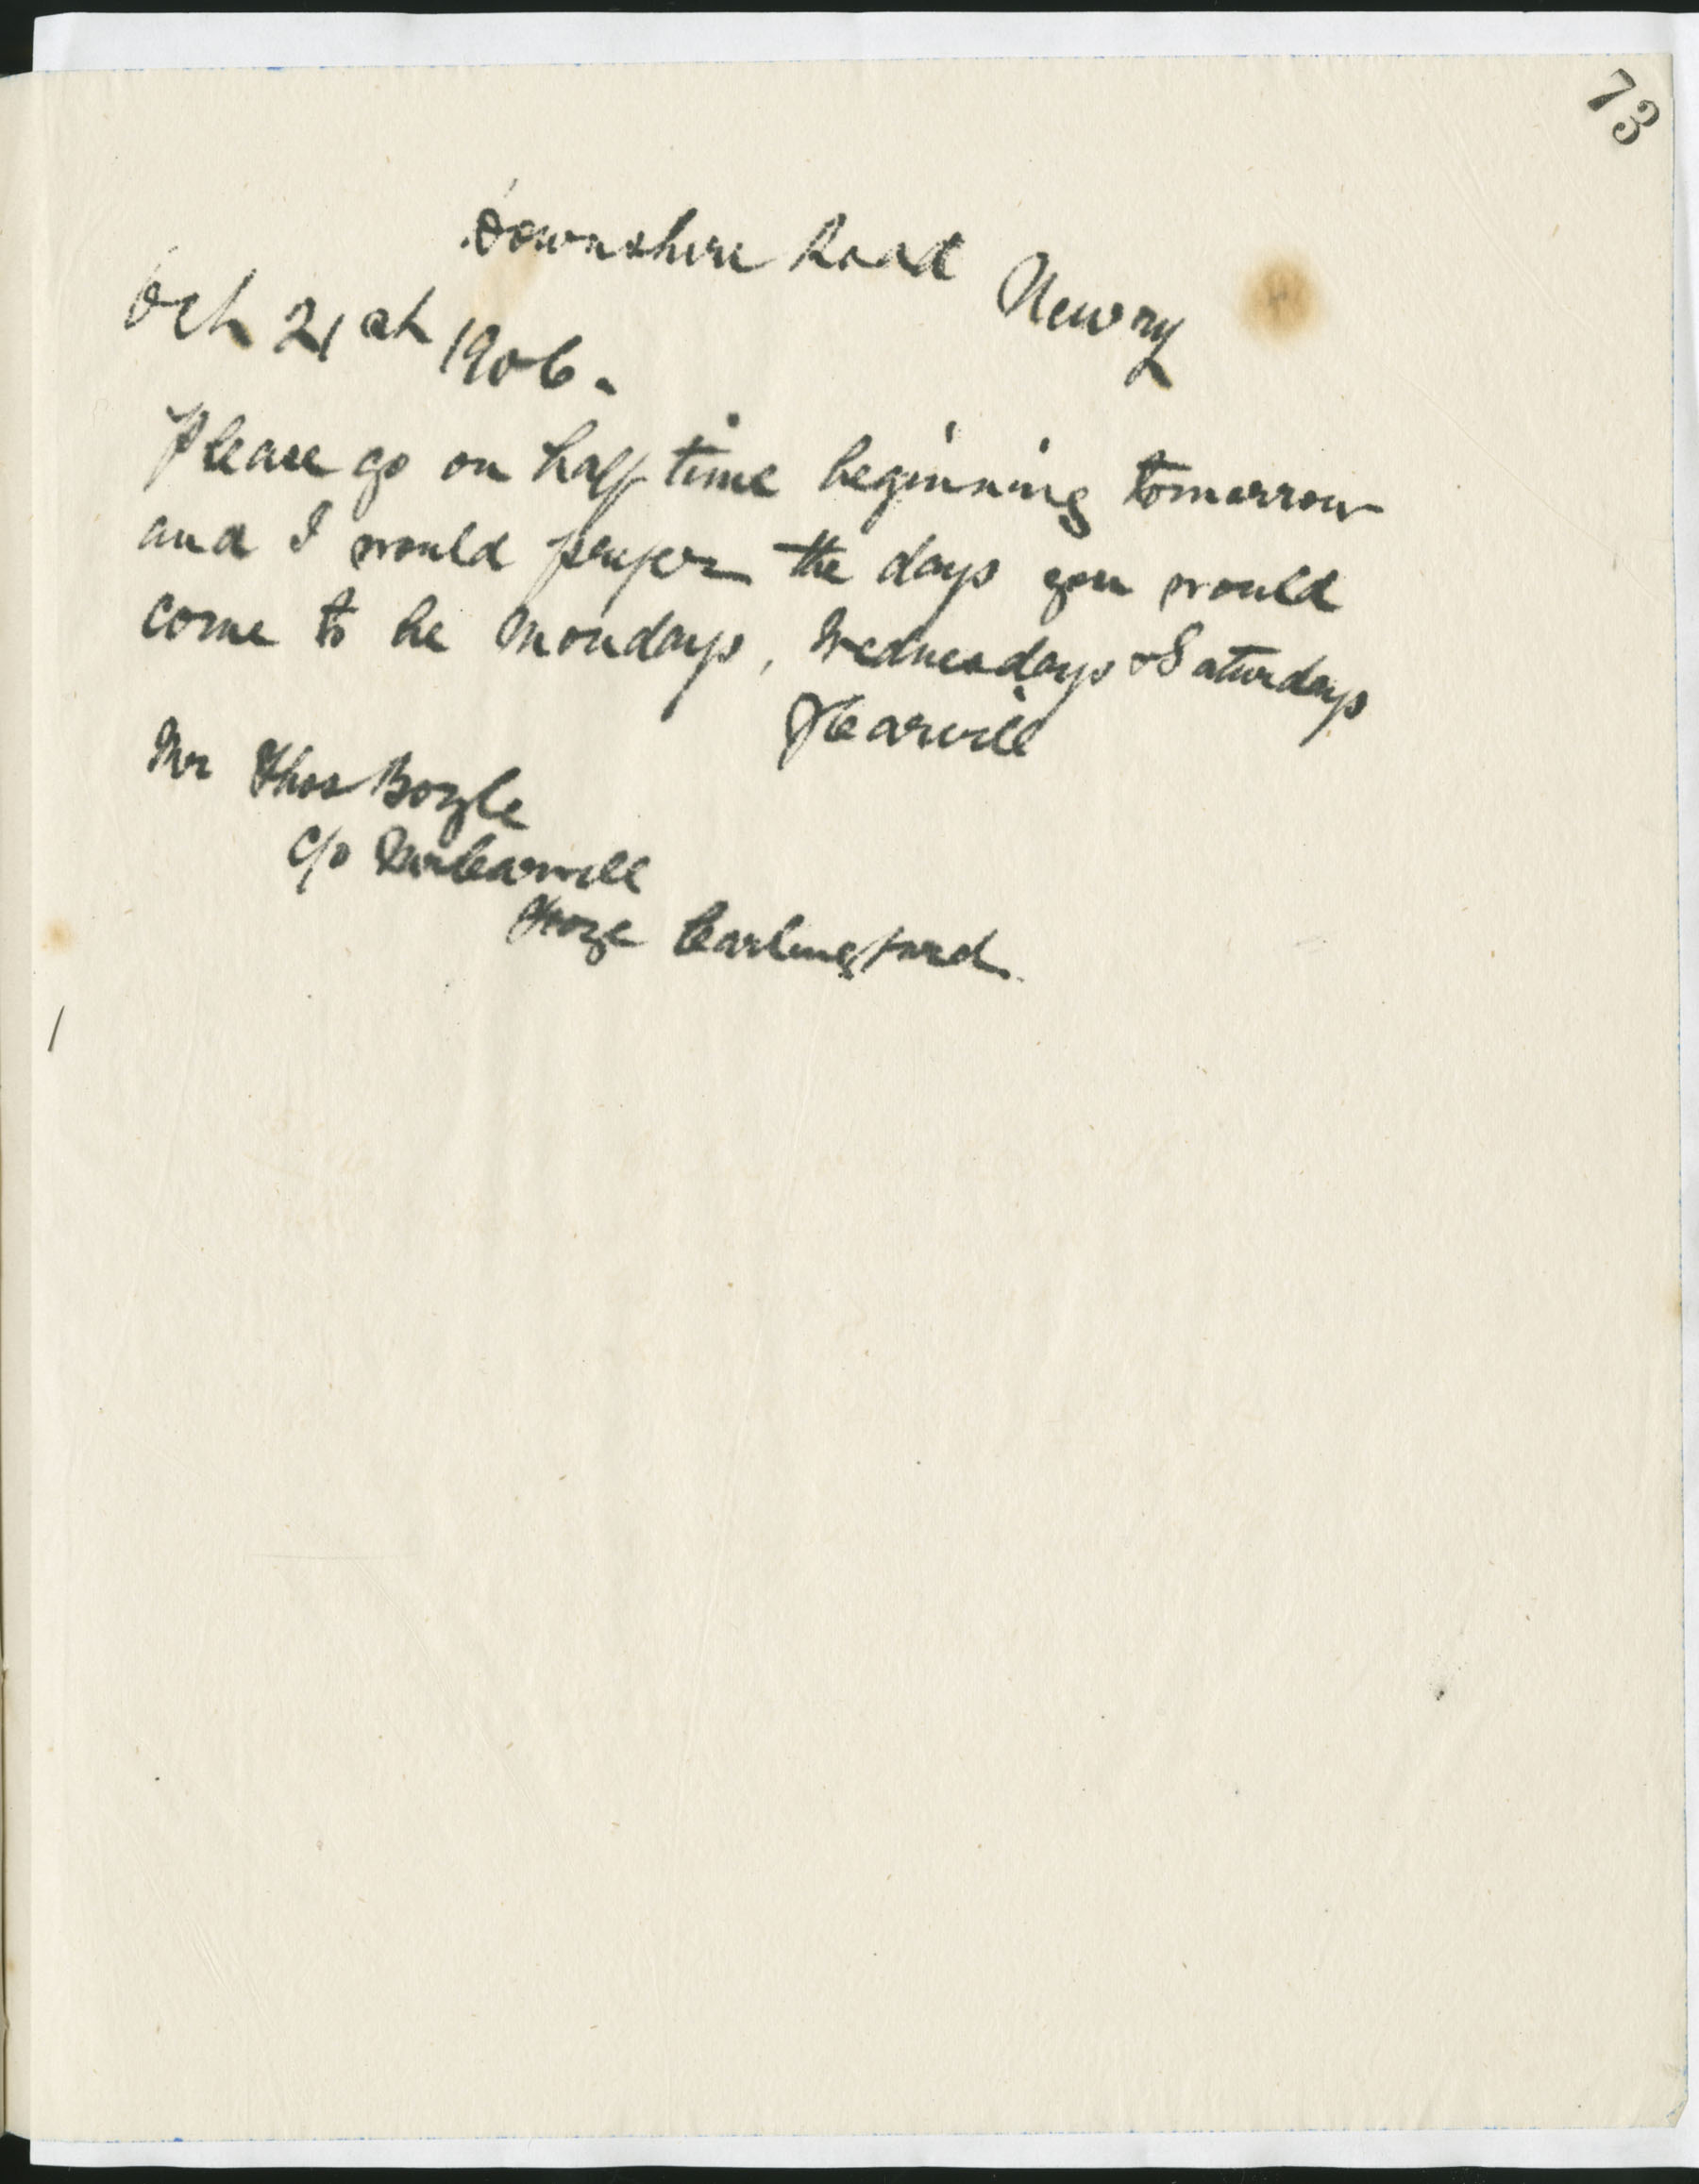 73
Downshire Road
Newry
Oct 21st 1906.
Please go on half time beginning tomorrow
and I would prefer the days you would
come to be Mondays, Wednesdays & Saturdays
JCarvill
Mr Thos Boyle
c/o Mr Carvill
Carlingford